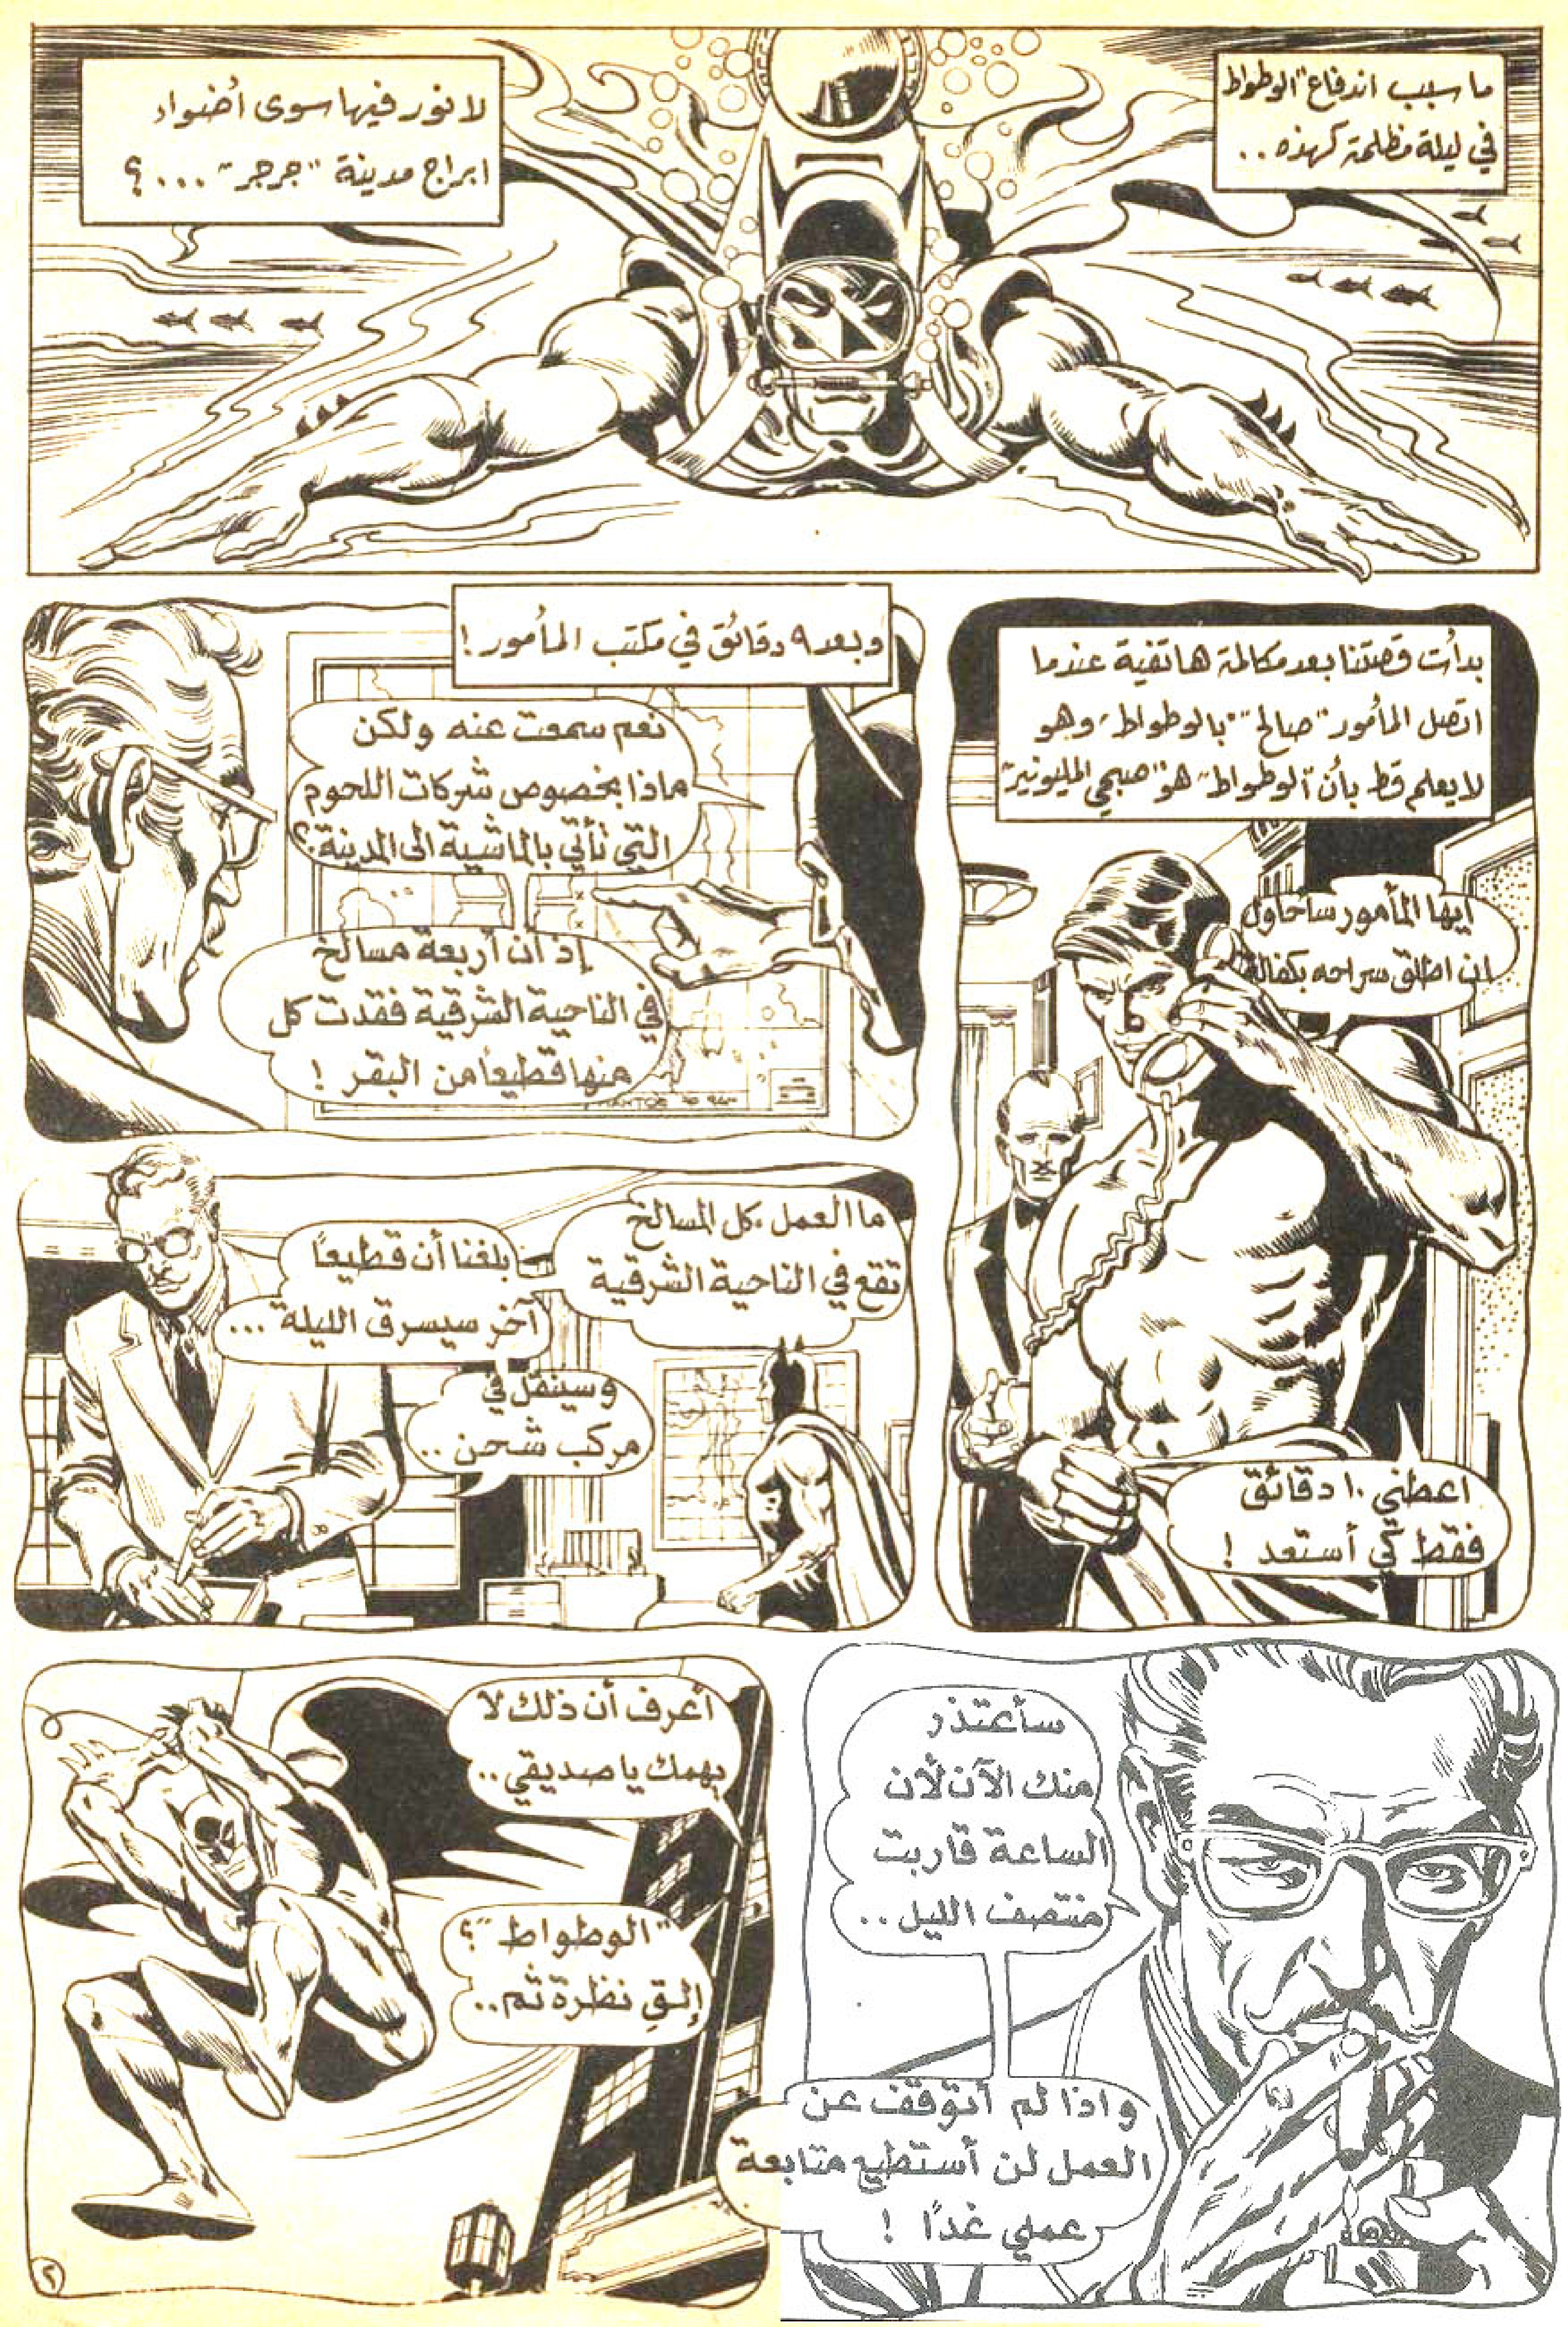 ما سبب اندفاع "الوطواط"
في ليلة مظلمة كهذه..
لا نور فيها سوى أضواء
ابراج مدينة "جرجر" ...؟
بدأت قصتنا بعد مكالمة هاتفية عندما
اتصل المأمور "صالح" بالوطواط، وهو
لا يعلم قط بأن "الوطواط" هو "صبحي" المليونير
أيها المأمور سأحاول
ان اطلق سراحه بكفالة
اعطني ١٠ دقائق
فقط كي أستعد !
وبعد ٩ دقائق في مكتب المأمور !
نعم سمعت عنه ولكن
ماذا بخصوص شركات اللحوم
التي تأتي بالماشية الى المدينة؟
إذ أن أربعة مسالخ
في الناحية الشرقية فقدت كل
منها قطيعاً من البقر !
ما العمل، كل المسالخ
تقع في الناحية الشرقية
بلغنا أن قطيعاً
آخر سيسرق الليلة ...
وسينقل في
مركب شحن ..
سأعتذر
منك الآن لأن
الساعة قاربت
منتصف الليل ..
واذا لم أتوقف عن
العمل لن أستطيع متابعة
عملي غداً !
أعرف أن ذلك لا
يهمك يا صديقي ..
"الوطواط"؟
إلقِ نظرة ثم ..
٢